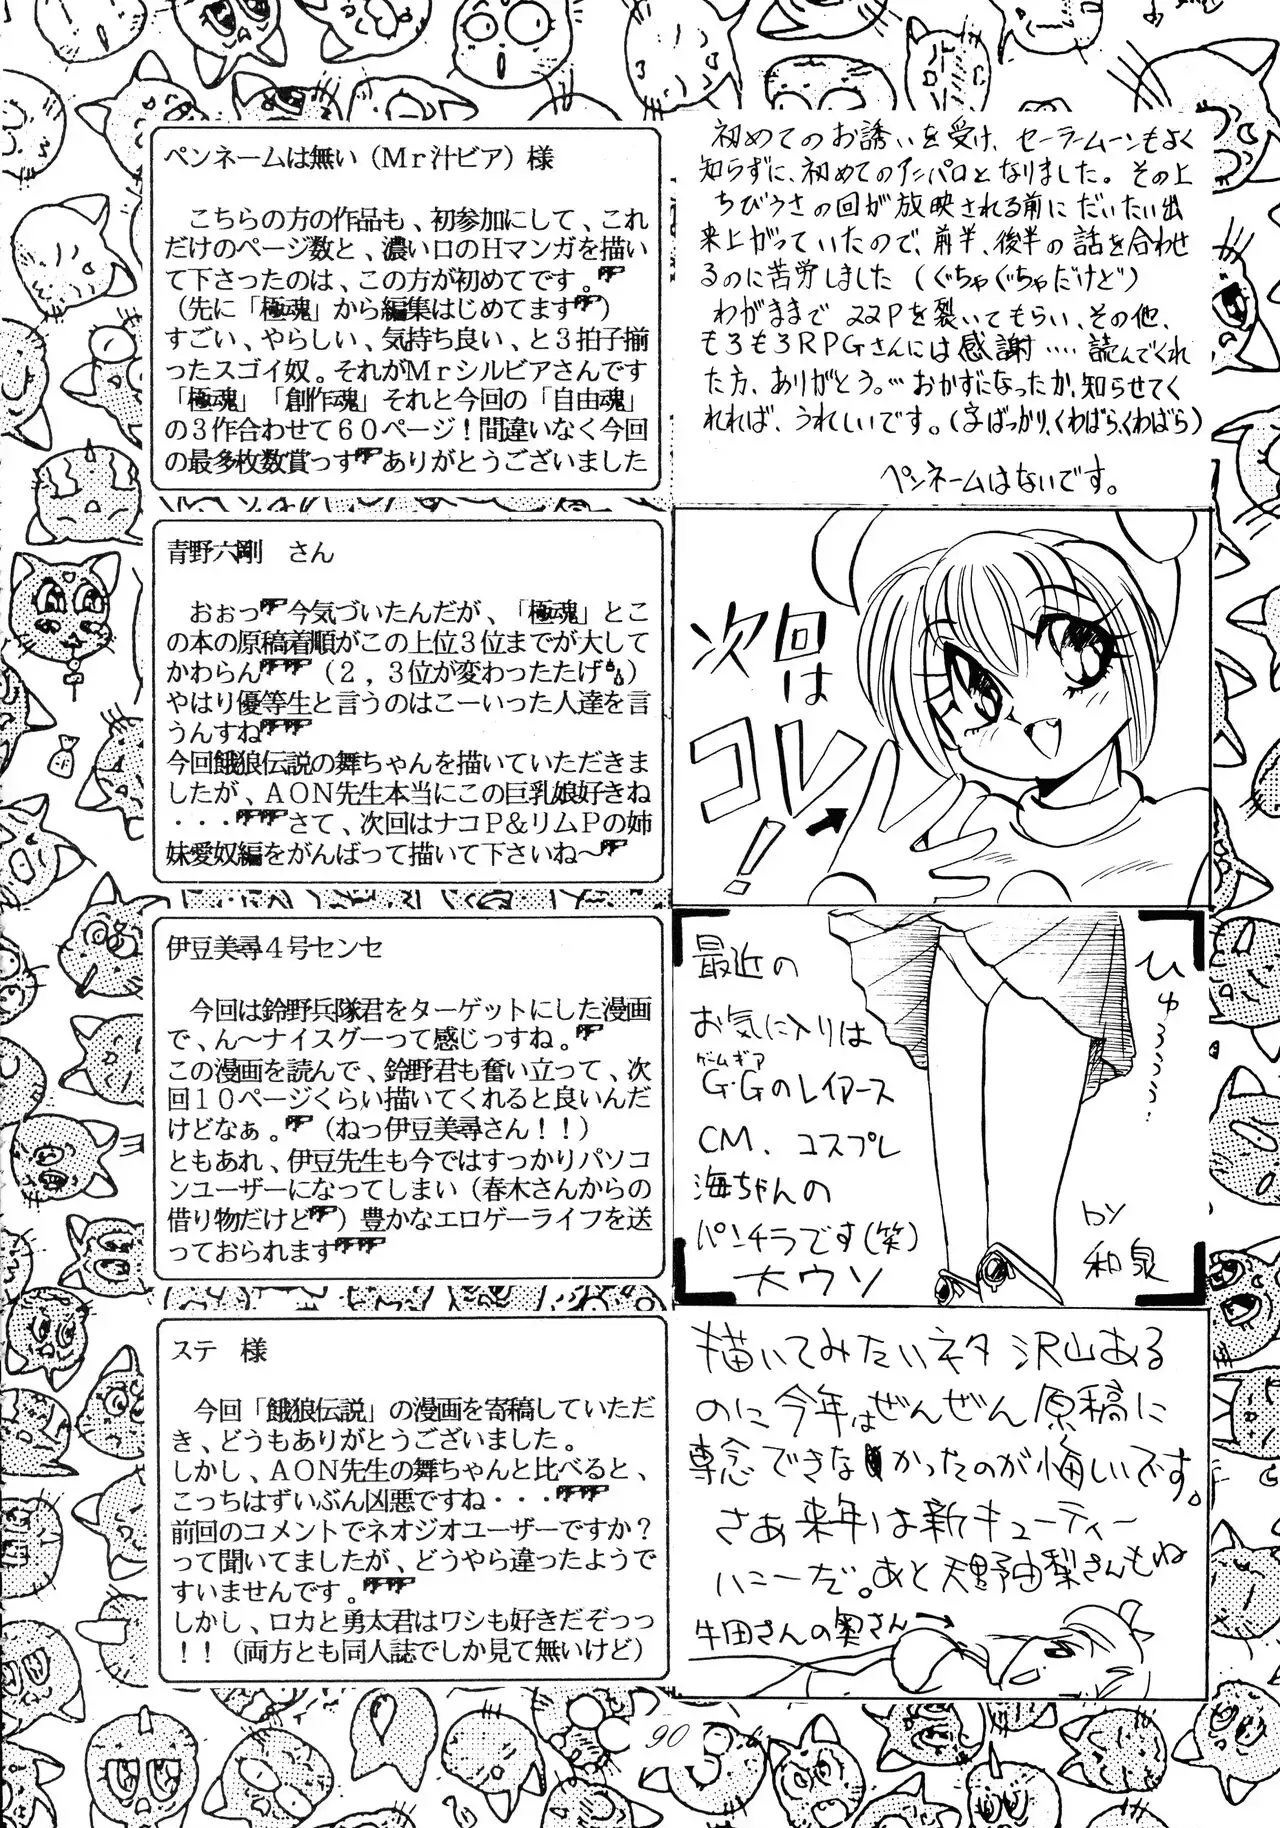 ペンネームは無い（Ｍｒ汁ビア）様
こちらの方の作品も、初参加にして、これ
だけのページ数と、濃い口のＨマンガを描い
て下さったのは、この方が初めてです。
（先に「極魂」から編集はじめてます）
すごい、やらしい、気持ち良い、と３拍子揃
ったスゴイ奴。それがＭｒシルビアさんです
「極魂」「創作魂」それと今回の「自由魂」
の３作合わせて６０ページ！間違いなく今回
の最多枚数賞っす　ありがとうございました
初めてのお誘いを受け、セーラームーンもよく
知らずに、初めてのアンパロとなりました。その上
ちびうさの回が放映される前にだいたい出
来上がっていたので、前半、後半の話を合わせ
るのに苦労しました（ぐちゃぐちゃだけど）
わがままで22Ｐを裂いてもらい、その他、
もろもろＲＰＧさんには感謝‥‥読んでくれ
た方、ありがとう。…おかずになったか、知らせてく
れれば、うれしいです。（字ばっかり、くわばらくわばら）
ペンネームはないです。
青野六剛　さん
おぉっ　今気づいたんだが、「極魂」とこ
の本の原稿着順がこの上位３位までが大して
かわらん（２，３位が変わったたげ）
やはり優等生と言うのはこーいった人達を言
うんすね
今回餓狼伝説の舞ちゃんを描いていただきま
したが、ＡＯＮ先生本当にこの巨乳娘好きね
・・・さて、次回はナコＰ＆リムＰの姉
妹愛奴編をがんばって描いて下さいね～
次回は
コレ！
伊豆美尋４号センセ
今回は鈴野兵隊君をターゲットにした漫画
で、ん～ナイスグーって感じっすね。
この漫画を読んで、鈴野君も奮い立って、次
回１０ページくらい描いてくれると良いんだ
けどなぁ。（ねっ伊豆美尋さん！！）
ともあれ、伊豆先生も今ではすっかりパソコ
ンユーザーになってしまい（春木さんからの
借り物だけど）豊かなエロゲーライフを送
っておられます
最近の
お気に入りは
ゲームギア
Ｇ・Ｇのレイアース
ＣＭ、コスプレ
海ちゃんの
パンチラです（笑）
大ウソ
ひゅううう…
by
和泉
ステ　様
今回「餓狼伝説」の漫画を寄稿していただ
き、どうもありがとうございました。
しかし、ＡＯＮ先生の舞ちゃんと比べると、
こっちはずいぶん凶悪ですね・・・
前回のコメントでネオジオユーザーですか？
って聞いてましたが、どうやら違ったようで
すいませんです。
しかし、ロカと勇太君はワシも好きだぞっっ
！！（両方とも同人誌でしか見て無いけど）
描いてみたいネタ沢山ある
のに今年はぜんぜん原稿に
専念できなかったのが悔しいです。
さあ来年は新キューティー
ハニーだ。あと天野由梨さんもね
牛田さんの奥さん→
90